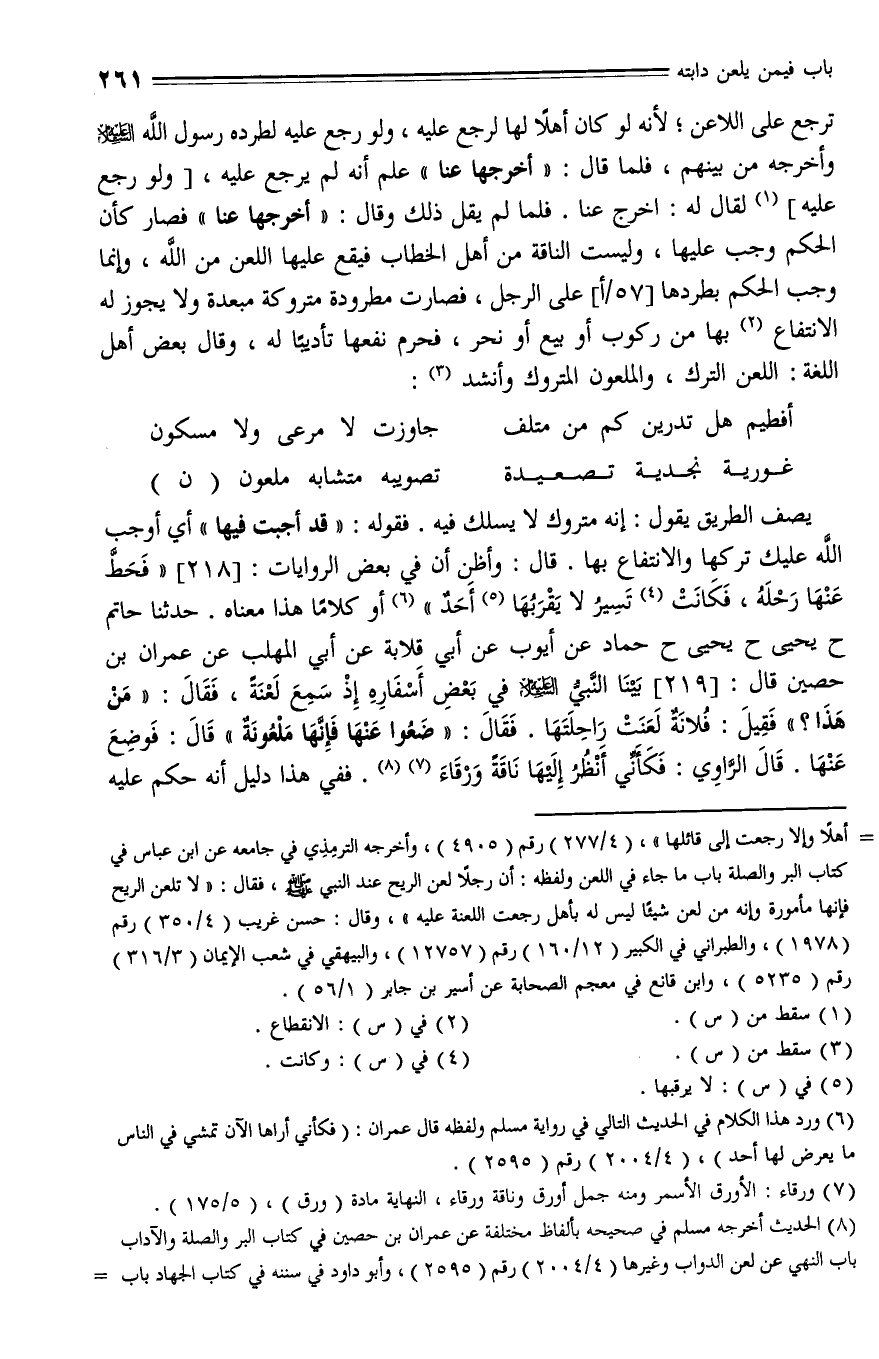 باب فيمن يلعن دابته ٢٦١
ترجع على اللاعن ؛ لأنه لو كان أهلًا لها لرجع عليه ، ولو رجع عليه لطرده رسول اللَّه عليه السلام
وأخرجه من بينهم ، فلما قال : « أخرجها عنا » علم أنه لم يرجع عليه ، [ ولو رجع
عليه ] (١) لقال له : اخرج عنا . فلما لم يقل ذلك وقال : « أخرجها عنا » فصار كأن
الحكم وجب عليها ، وليست الناقة من أهل الخطاب فيقع عليها اللعن من اللَّه ، وإنما
وجب الحكم بطردها [٥٧/أ] على الرجل ، فصارت مطرودة متروكة مبعدة ولا يجوز له
الانتفاع (٢) بها من ركوب أو بيع أو نحر ، فحرم نفعها تأديبًا له ، وقال بعض أهل
اللغة : اللعن الترك ، والملعون المتروك وأنشد (٣) :
أفطيم هل تدرين كم من متلف جاوزت لا مرعى ولا مسكون
غورية نجدية تصعيدة تصويبه متشابه ملعون ( ن )
يصف الطريق يقول : إنه متروك لا يسلك فيه . فقوله : « قد أجبت فيها » أي أوجب
اللَّه عليك تركها والانتفاع بها . قال : وأظن أن في بعض الروايات : [٢١٨] « فَحَطَّ
عَنْهَا رَحْلَهُ ، فَكَانَتْ (٤) تَسِيرُ لا يَقْرَبُهَا (٥) أَحَدٌ » (٦) أو كلامًا هذا معناه . حدثنا حاتم
ح يحيى ح يحيى ح حماد عن أيوب عن أبي قلابة عن أبي المهلب عن عمران بن
حصين قال : [٢١٩] بَيْنَا النَّبِيُّ عليه السلام في بَعْضِ أَسْفَارِهِ إِذْ سَمِعَ لَعْنَةً ، فَقَالَ : « مَنْ
هَذَا ؟ » فَقِيلَ : فُلَانَةٌ لَعَنَتْ رَاحِلَتَهَا . فَقَالَ : « ضَعُوا عَنْهَا فَإِنَّهَا مَلْعُونَةٌ » قَالَ : فَوضِعَ
عَنْهَا . قَالَ الرَّاوِي : فَكَأَنِّي أَنْظُرُ إِلَيْهَا نَاقَةً وَرْقَاءَ (٧) (٨) . ففي هذا دليل أنه حكم عليه
= أهلًا وإلا رجعت إلى قائلها » ، ( ٢٧٧/٤ ) رقم ( ٤٩٠٥ ) ، وأخرجه الترمذي في جامعه عن ابن عباس في
كتاب البر والصلة باب ما جاء في اللعن ولفظه : أن رجلًا لعن الريح عند النبي ﷺ ، فقال : « لا تلعن الريح
فإنها مأمورة وإنه من لعن شيئًا ليس له بأهل رجعت اللعنة عليه » ، وقال : حسن غريب ( ٣٥٠/٤ ) رقم
( ١٩٧٨ ) ، والطبراني في الكبير ( ١٦٠/١٢ ) رقم ( ١٢٧٥٧ ) ، والبيهقي في شعب الإيمان ( ٣١٦/٣ )
رقم ( ٥٢٣٥ ) ، وابن قانع في معجم الصحابة عن أسير بن جابر ( ٥٦/١ ) .
(١) سقط من ( س ) . (٢) في ( س ) : الانقطاع .
(٣) سقط من ( س ) . (٤) في ( س ) : وكانت .
(٥) في ( س ) : لا يرقبها .
(٦) ورد هذا الكلام في الحديث التالي في رواية مسلم ولفظه قال عمران : ( فكأني أراها الآن تمشي في الناس
ما يعرض لها أحد ) ، ( ٢٠٠٤/٤ ) رقم ( ٢٥٩٥ ) .
(٧) ورقاء : الأورق الأسمر ومنه جمل أورق وناقة ورقاء ، النهاية مادة ( ورق ) ، ( ١٧٥/٥ ) .
(٨) الحديث أخرجه مسلم في صحيحه بألفاظ مختلفة عن عمران بن حصين في كتاب البر والصلة والآداب
باب النهي عن لعن الدواب وغيرها ( ٢٠٠٤/٤ ) رقم ( ٢٥٩٥ ) ، وأبو داود في سننه في كتاب الجهاد باب =